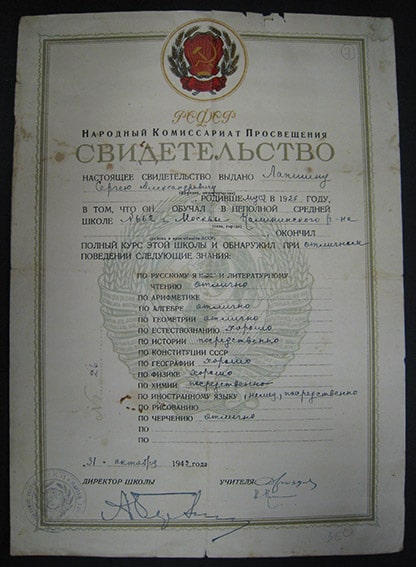 РСФСР
НАРОДНЫЙ КОМИССАРИАТ ПРОСВЕЩЕНИЯ
СВИДЕТЕЛЬСТВО
НАСТОЯЩЕЕ СВИДЕТЕЛЬСТВО ВЫДАНО Лапшину
Сергею Александровичу
, РОДИВШЕМУСЯ В 1926 ГОДУ,
В ТОМ, ЧТО ОН ОБУЧАЛ В НЕПОЛНОЙ СРЕДНЕЙ
ШКОЛЕ №662 г. Москвы Калининского р-на
, ОКОНЧИЛ
ПОЛНЫЙ КУРС ЭТОЙ ШКОЛЫ И ОБНАРУЖИЛ ПРИ отличном
ПОВЕДЕНИИ СЛЕДУЮЩИЕ ЗНАНИЯ:
ПО РУССКОМУ ЯЗЫКУ И ЛИТЕРАТУРНОМУ
ЧТЕНИЮ отлично
ПО АРИФМЕТИКЕ
ПО АЛГЕБРЕ отлично
ПО ГЕОМЕТРИИ отлично
ПО ЕСТЕСТВОЗНАНИЮ хорошо
ПО ИСТОРИИ посредственно
ПО КОНСТИТУЦИИ СССР
ПО ГЕОГРАФИИ хорошо
ПО ФИЗИКЕ хорошо
ПО ХИМИИ посредственно
ПО ИНОСТРАННОМУ ЯЗЫКУ (немец.) посредственно
ПО РИСОВАНИЮ
ПО ЧЕРЧЕНИЮ отлично
ПО
ПО
31 октября 1942 года
ДИРЕКТОР ШКОЛЫ УЧИТЕЛЯ: